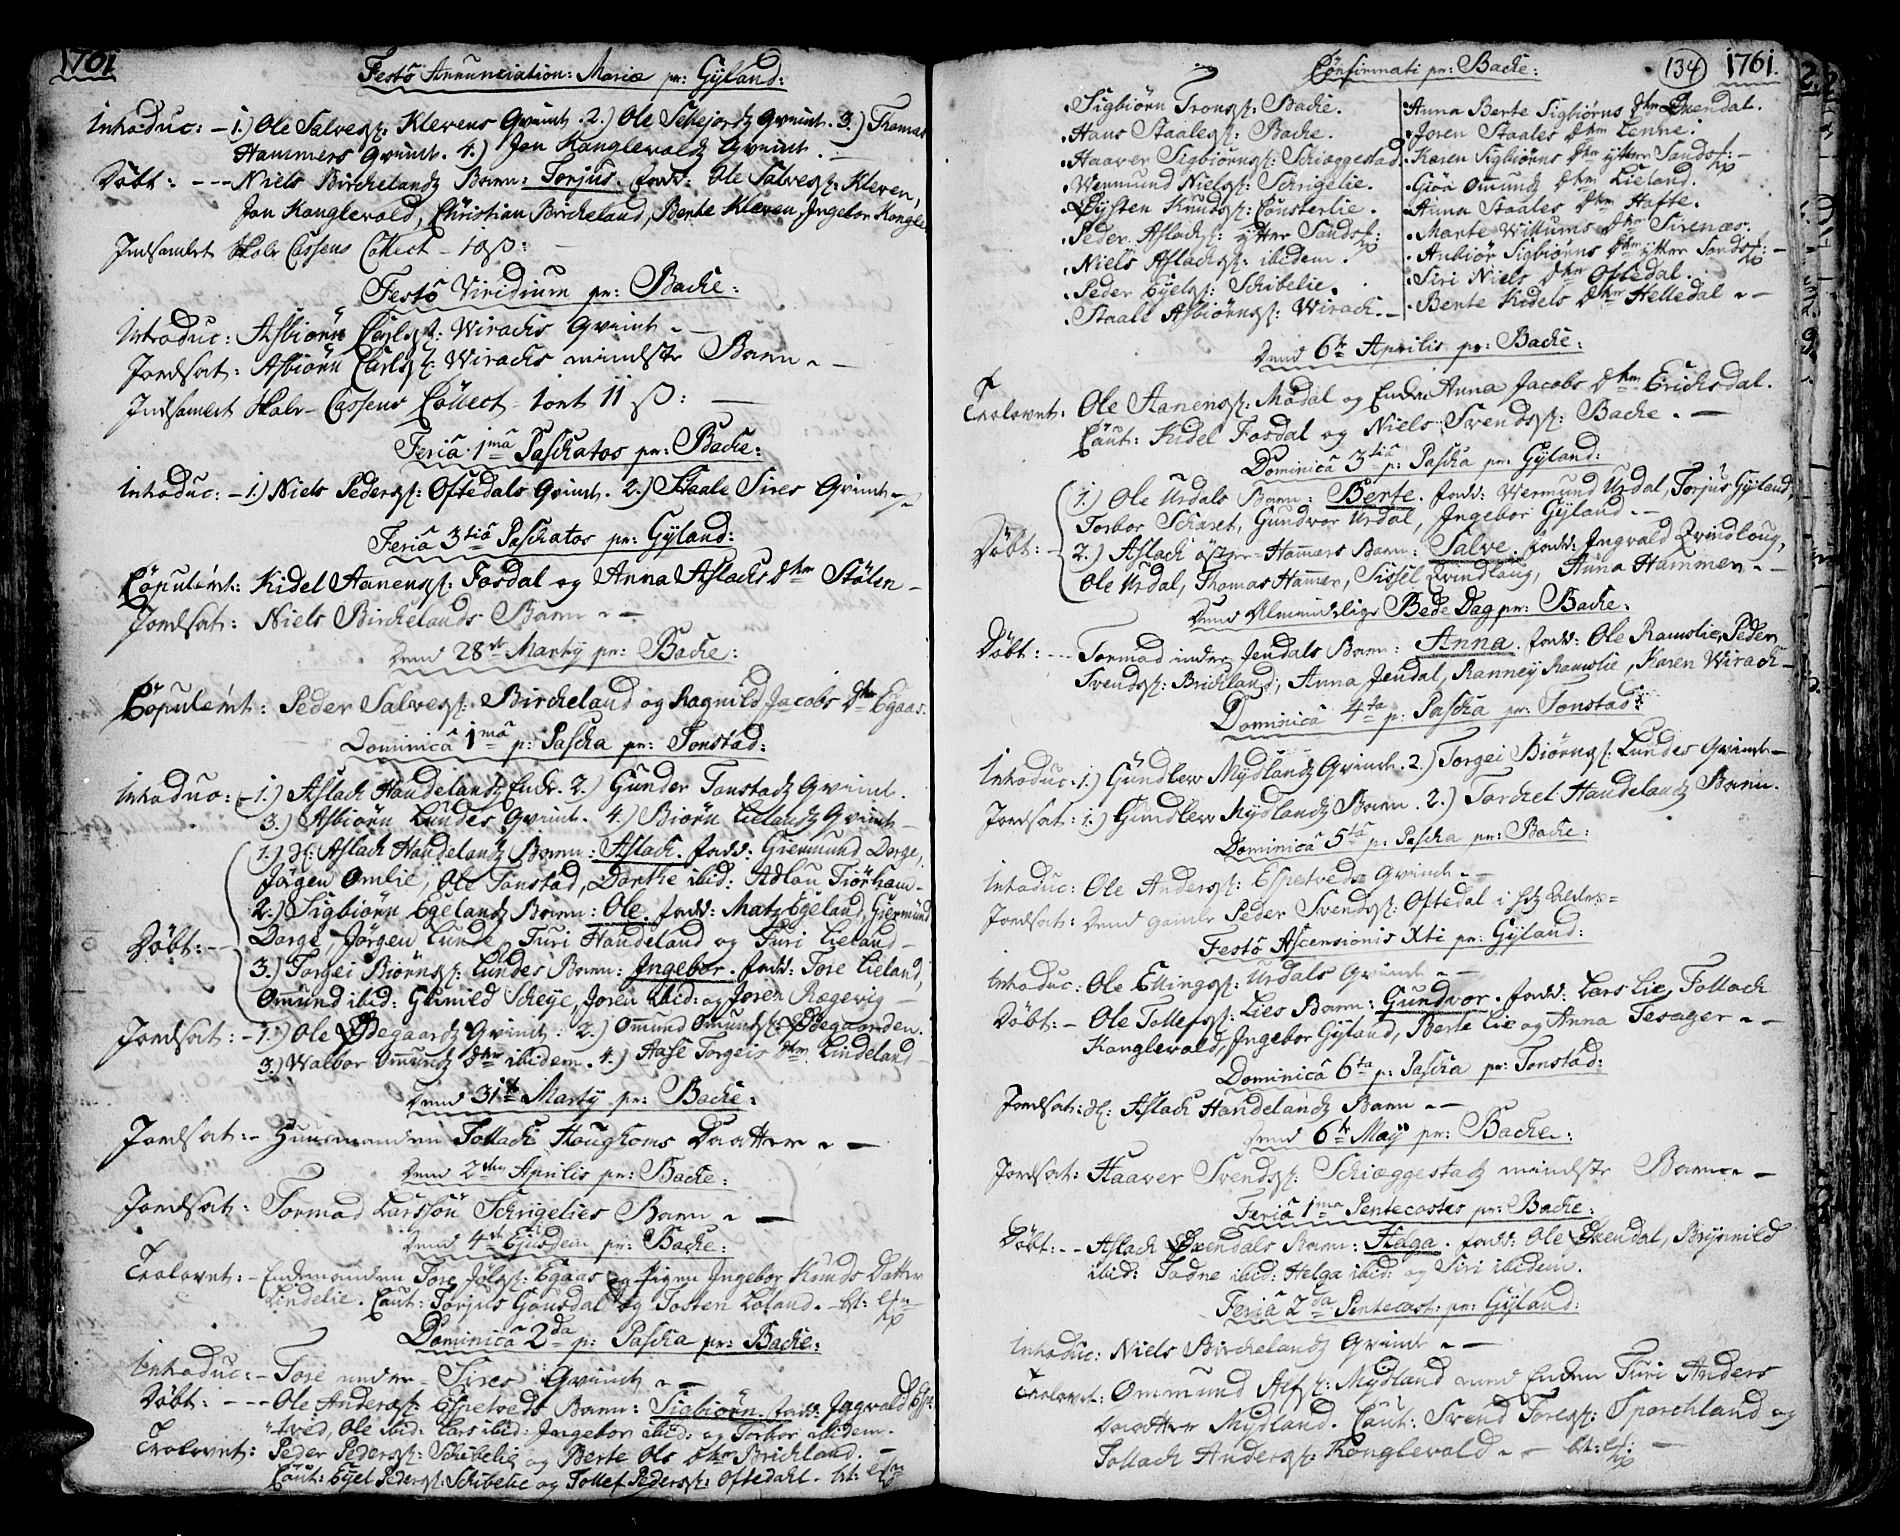 1761
Festo Annunciation: Mariæ pr: Gyland:
Introduc: – 1.) Ole Salvesß: Klevens Qvinde. 2.) Ole Qvinde. 3.) Thomas
Hammers Qvinde. 4.) Jon Kanglevalds Qvinde.
Döbt: --- Niels Birchelands Barn: Torjus. fadd: Ole Salvesß: Kleven,
Jon Kanglevald, Christian Bircheland, Berte Kleven, Ingebor Kangle
Indsamlet Skole Cassens Collect –
Festo Viridium pr: Bache:
Introduc: Asbiörn Carlsß: Wirachs Qvinde. –
Jordsat: Asbiörn Carlsß: Wirachs mindste Barn. –
Indsamlet Skole-Cassens Collect – 1 ort 11 ß: –
Feria 1ma Paschatos pr: Bache:
Introduc: – 1.) Niels Pedersß: Oftedals Qvinde. 2.) Staale Sires Qvinde –
Feria 3tia Paschatos pr: Gyland:
Copulert: Kidel Aanensß: Fosdal og Anna Aslachs dtr Stölen –
Jordsat: Niels Birchelands Barn. –
dend 28de Marty pr: Bache:
Copulert: Peder Salvesß: Bircheland og Ragnild Jacobs dtr Egaas.
Dominica 1ma p: Pascha pr: Tonstad:
Introduc: – 1.) Aslach Haudelands Enke. 2.) Gunder Tonstads Qvinde.
3.) Asbiörn Lundes Qvinde. 4.) Biörn Lielands Qvinde –
1.) Sl: Aslach Haudelands Barn: Aslach. fadd: Giermund Dorge,
Jörgen Omlie, Ole Tonstad, Dorthe ibid: Adlou Tiörhom –
2.) Sigbiörn Egelands Barn: Ole. fadd: Matz Egeland, Giermund
Döbt: –
Dorge, Jörgen Lunde, Turi Haudeland og Turi Lieland –
3.) Torgei Biörnsß: Lundes Barn: Ingebor. fadd: Tore Lieland,
Ommund ibid: Gunild Scheye, Joren ibid: og Joren Rægevig –
Jordsat: – 1.) Ole Ödegaards Qvinde: 2.) Omund Omundsß: Ödegaarden.
3.) Walbor Omunds dtr ibidem. 4.) Aase Torgeis dtr Lindeland –
dend 31te Marty pr: Bache:
Jordsat: – Huusmanden Tollach Houghoms Daatter. –
dend 2den Aprilis pr: Bache:
Jordsat: Tormod Larsson Schrigelies Barn. –
dend 4de Ejusdem pr: Bache:
Trolovet: – Enkemanden Tore Josß: Egaas og Pigen Ingebor Knuds Datter
Lindelie. Caut: Torjus Gousdal og Tosten Loland.
Dominica 2da p: Pascha pr: Bache:
Introduc: – Tore nedre – Sires Qvinde. –
Döbt: --- Ole Andersß: Espetveds Barn: Sigbiörn. fadd: Ingvald Espe
-tved, Ole ibid: Lars ibid: Ingebor ibid: og Torbor ibidem.
Trolovet: Peder Pedersß: Schibelie og Berte Ols dtr Brichland. –
Caut: Eyel Pedersß: Schibelie og Tollef Pedersß: Oftedahl.
134
1761.
Confirmati pr: Bache:
Sigbiörn Tronsß: Bache.
Hans Staalesß: Bache.
Haaver Sigbiörnsß: Schiæggestad
Wermund Nielsß: Schrigelie.
Öysten Knudsß: Counsterlie.
Peder Aslachsß: ytter Sands:
Niels Aslachsß: ibidem.
Peder Eyelsß: Schibelie.
Staale Asbiörnsß: Wirach. –
Anna Berte Sigbiörns dtr Öxendal.
Joren Staales dtr Lenne.
Karen Sigbiörns dtr ytter Sands: –
Giöa Omunds dtr Lieland.
Anna Staales dtr Hafte.
Marte Willums dtr Sirenæs.
Anbiör Sigbiörns dtr ytter Sands: –
Siri Niels dtr Oftedal.
Bente Kidels dtr Helledal. –
dend 6te Aprilis pr: Bache:
Trolovet: Ole Aanensß: Modal og Enken Anna Jacobs dtr Erichsdal.
Caut: Kidel Fosdal og Niels Svendsß: Bache. –
Dominica 3tia p: Pascha pr: Gyland:
1.) Ole Urdals Barn: Berte. fadd: Wermund Urdal, Torjus Gyland,
Torbor Scharet, Gundvor Urdal, Ingebor Gyland. –
Döbt: –
2.) Aslach öster-Hamers Barn: Salve. fadd: Ingvald Qvindloug,
Ole Urdal, Thomas Hamer, Sissel Qvindloug, Anna Hammer. –
dend Almindelige Bede Dag pr: Bache:
Döbt: --- Tormod indre Jendals Barn: Anna. fadd: Ole Ramslie, Peder
Svendsß: Brichland, Anna Jendal, Ranney Ramslie, Karen Wirach –
Dominica 4ta p: Pascha pr: Tonstad:
Introduc. 1.) Gundlew Mydlands Qvinde. 2.) Torgei Biörnsß: Lundes Qvinde –
Jordsat: 1.) Gundlew Mydlands Barn. 2.) Torchel Haudelands Barn.
Dominica 5ta p: Pascha pr: Bache:
Introduc: Ole Andersß: Espetveds Qvinde. –
Jordsat: dend gamle Peder Svendsß: Oftedal i
Festo Ascensionis Xti pr: Gyland:
Introduc: Ole Ellingsß: Urdals Qvinde. –
Döbt: – Ole Tollefsß: Lies Barn: Gundvor. fadd: Lars Lie, Tollach
Kanglevald, Ingebor Gyland, Berte Lie og Anna Tesager. –
Dominica 6ta p: Pascha pr: Tonstad:
Jordsat: Sl: Aslach Haudelands Barn. –
dend 6te May pr: Bache:
Jordsat: Haaver Svendsß: Schiæggestads mindste Barn. –
Feria 1ma Pentecostes pr: Bache:
Döbt: -- Aslach Öxendals Barn: Helga. fadd: Ole Öxendal, Brynnild
ibid: Tadne ibid: Helga ibid: og Siri ibidem.
Feria 2da Pentecost: pr: Gyland:
Introduc: Niels Birchelands Qvinde. –
Trolovet: Ommund Alfsß: Mydland med Enken Turi Anders
Daatter Mydland. Caut: Svend Toresß: Sporchland og
Tollach Andersß: Konglevald. –